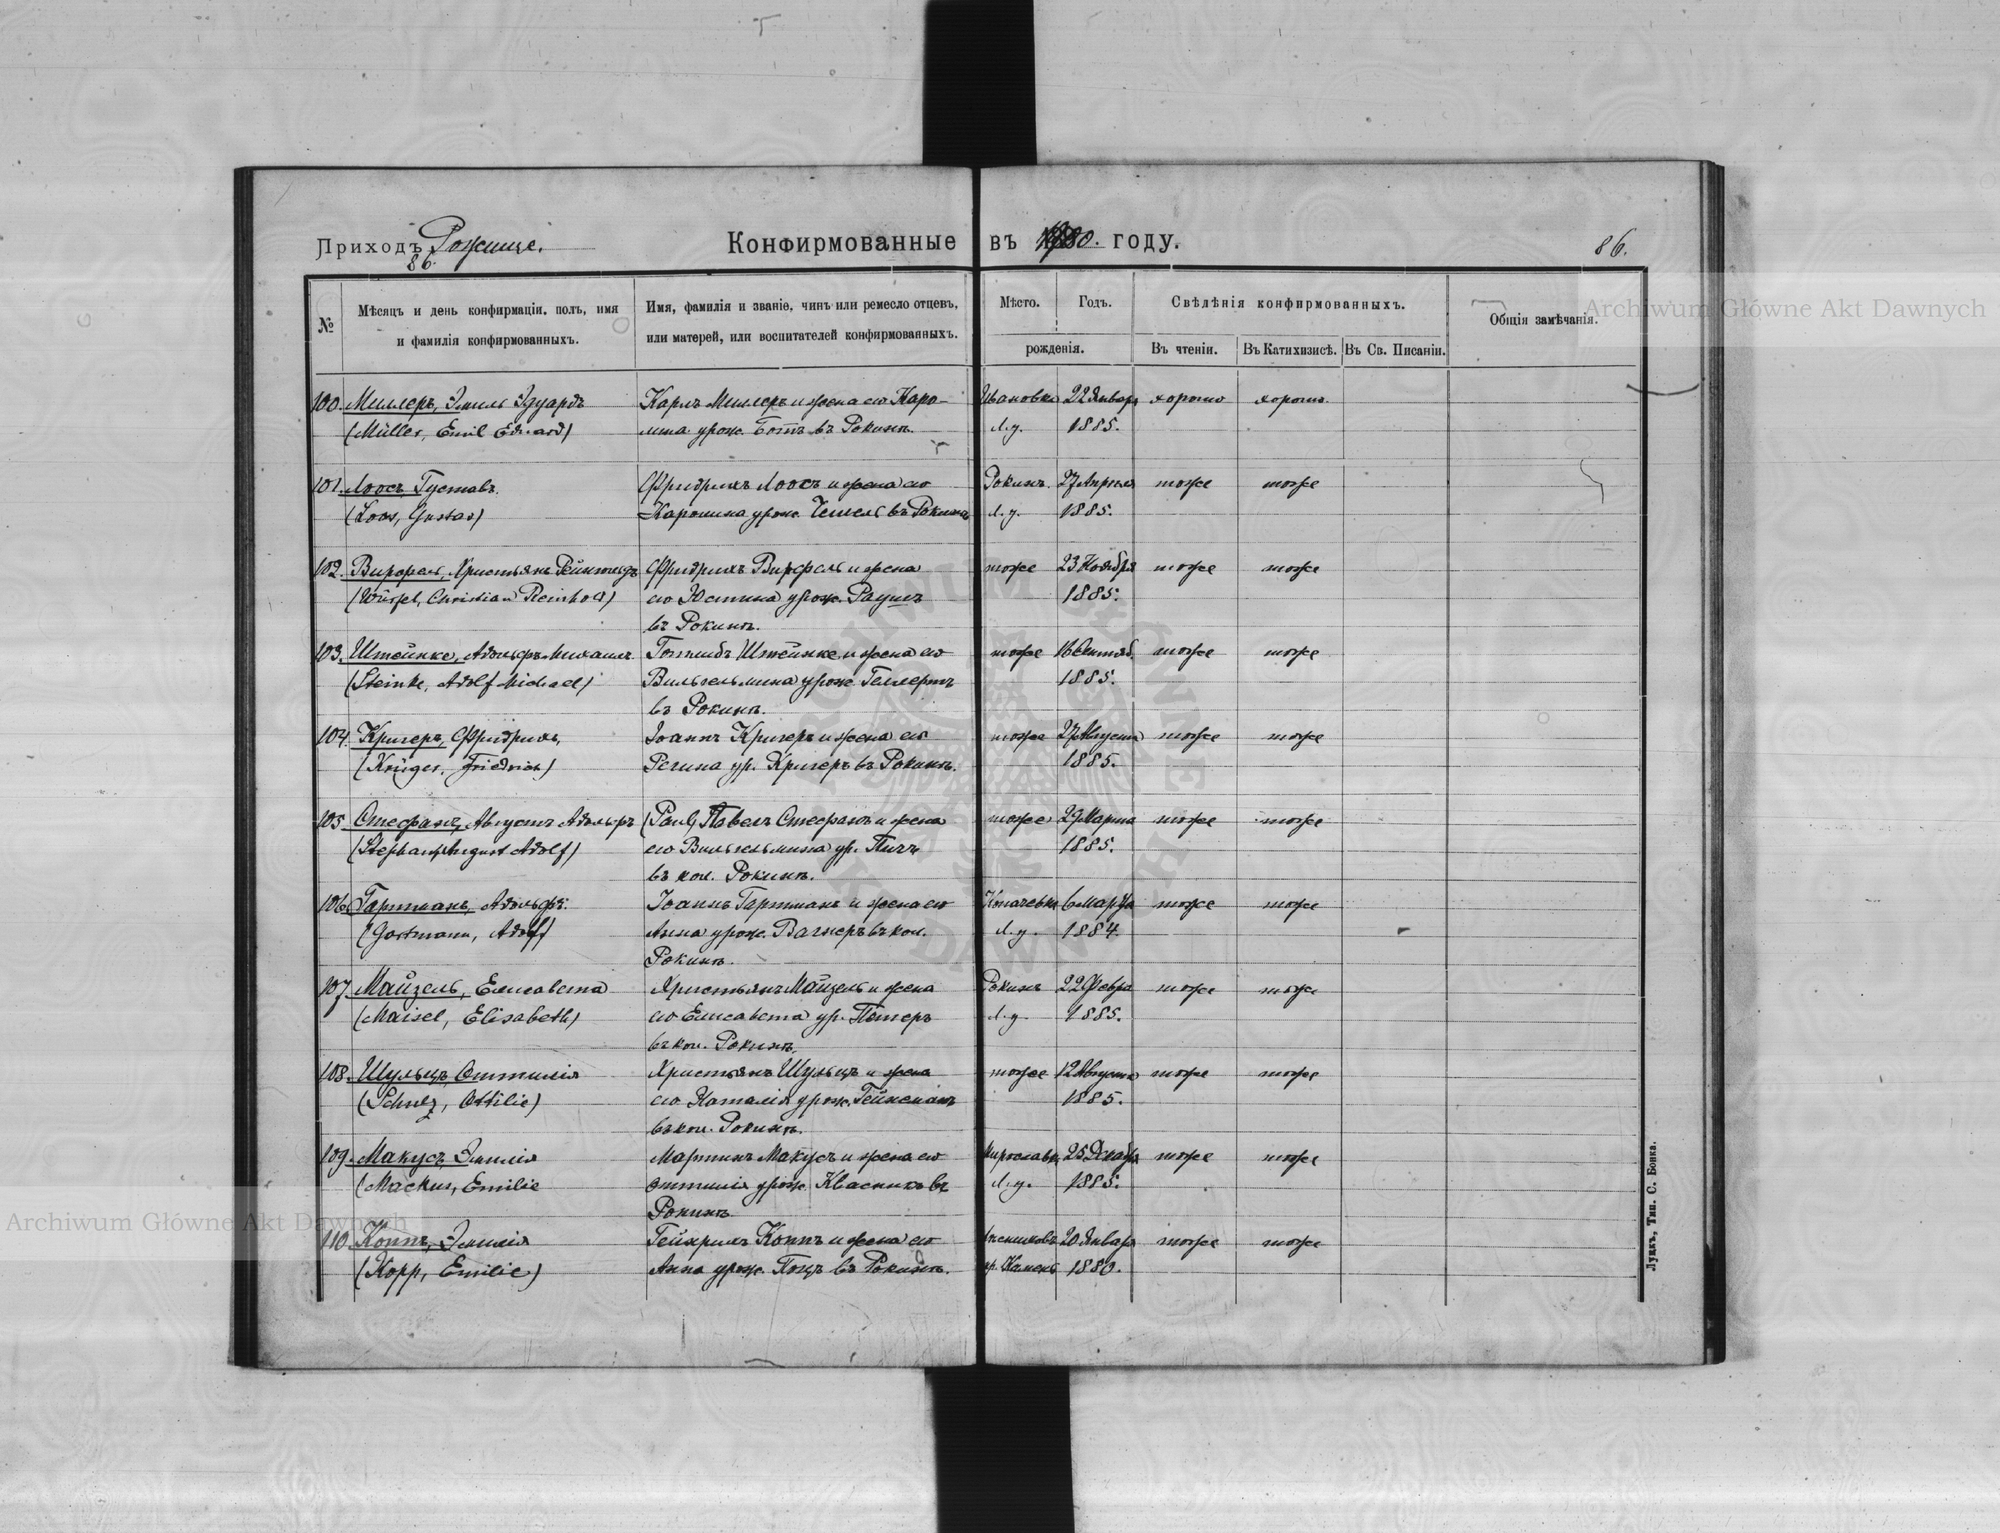 Приходъ Рожище.
86.
Конфирмованные въ году.
86.
№
Мѣсяцъ и день конфирмаціи, полъ, имя
и фамилія конфирмованныхъ.
Имя, фамилія и званіе, чинъ или ремесло отцевъ,
или матерей, или воспитателей конфирмованныхъ.
Мѣсто.
Годъ.
рожденія.
Свѣдѣнія конфирмованныхъ.
Въ чтеніи.
Въ Катихизисѣ.
Въ Св. Писаніи.
Общія замѣчанія.
100. Миллеръ, Эмиль Эдуардъ
(Müller, Emil Eduard)
Карлъ Миллеръ и жена его Каро-
лина урож. въ Рокинъ.
Ивановка
Л.у.
22 Января
1885.
хорошо
хорошо
101. Лоосъ Густавъ.
(Loos, Gustav)
Фридрихъ Лоосъ и жена его
Каролина урож. въ Рокинъ
Рокинъ.
Л.у.
27 Апрѣля
1885.
тоже
тоже
102. Вирфель, Христьянъ Рейнгольдъ
(Würfel, Christian Reinhold)
Фридрихъ Вирфель и жена
его Юстина урож. Раушъ
въ Рокинъ.
тоже
23 Ноября
1885.
тоже
тоже
103. Штейнке, Адольфъ Михаилъ
(Steinke, Adolf Michael)
Готлибъ Штейнке и жена его
Вильгельмина урож. Геллертъ
въ Рокинъ.
тоже
1885.
тоже
тоже
104. Кригеръ, Фридрихъ,
(Krüger, Friedrich)
Іоаннъ Кригеръ и жена его
Регина ур. Кригеръ въ Рокинъ.
тоже
27 Августа
1885.
тоже
тоже
105. Стефанъ, Августъ Адольфъ
(Stephan, August Adolf)
(Paul) Павелъ Стефанъ и жена
его Вильгельмина ур.
въ кол. Рокинъ.
тоже
29 Марта
1885.
тоже
тоже
106. Гартманъ, Адольфъ.
(Hartmann, Adolf)
Іоаннъ Гартманъ и жена его
Анна урож. Вагнеръ въ кол.
Рокинъ.
Копачевка
Л.у.
6 Марта
1884.
тоже
тоже
107. Майзель, Елисавета
(Maisel, Elisabeth)
Христьянъ Майзель и жена
его Елисавета ур.
въ кол. Рокинъ.
Рокинъ
Л.у.
22 Февра
1885.
тоже
тоже
108. Шульцъ, Оттилія
(Schulz, Ottilie)
Христьянъ Шульцъ и жена
его Наталія урож.
въ кол. Рокинъ.
тоже
12 Августа
1885.
тоже
тоже
109. Макусъ, Эмилія
(Mackus, Emilie
Мартинъ Макусъ и жена его
Оттилія урож. Квасникъ въ
Рокинъ
Мирославка
Л.у.
25 Декабря
1885.
тоже
тоже
110. Коппъ, Эмилія
(Kopp, Emilie)
Гейнрихъ Коппъ и жена его
Анна урож. въ Рокинъ.
20 Января
1880.
тоже
тоже
Луцкъ, Тип. С. Бонка.
Archiwum Główne Akt Dawnych
Archiwum Główne Akt Dawnych